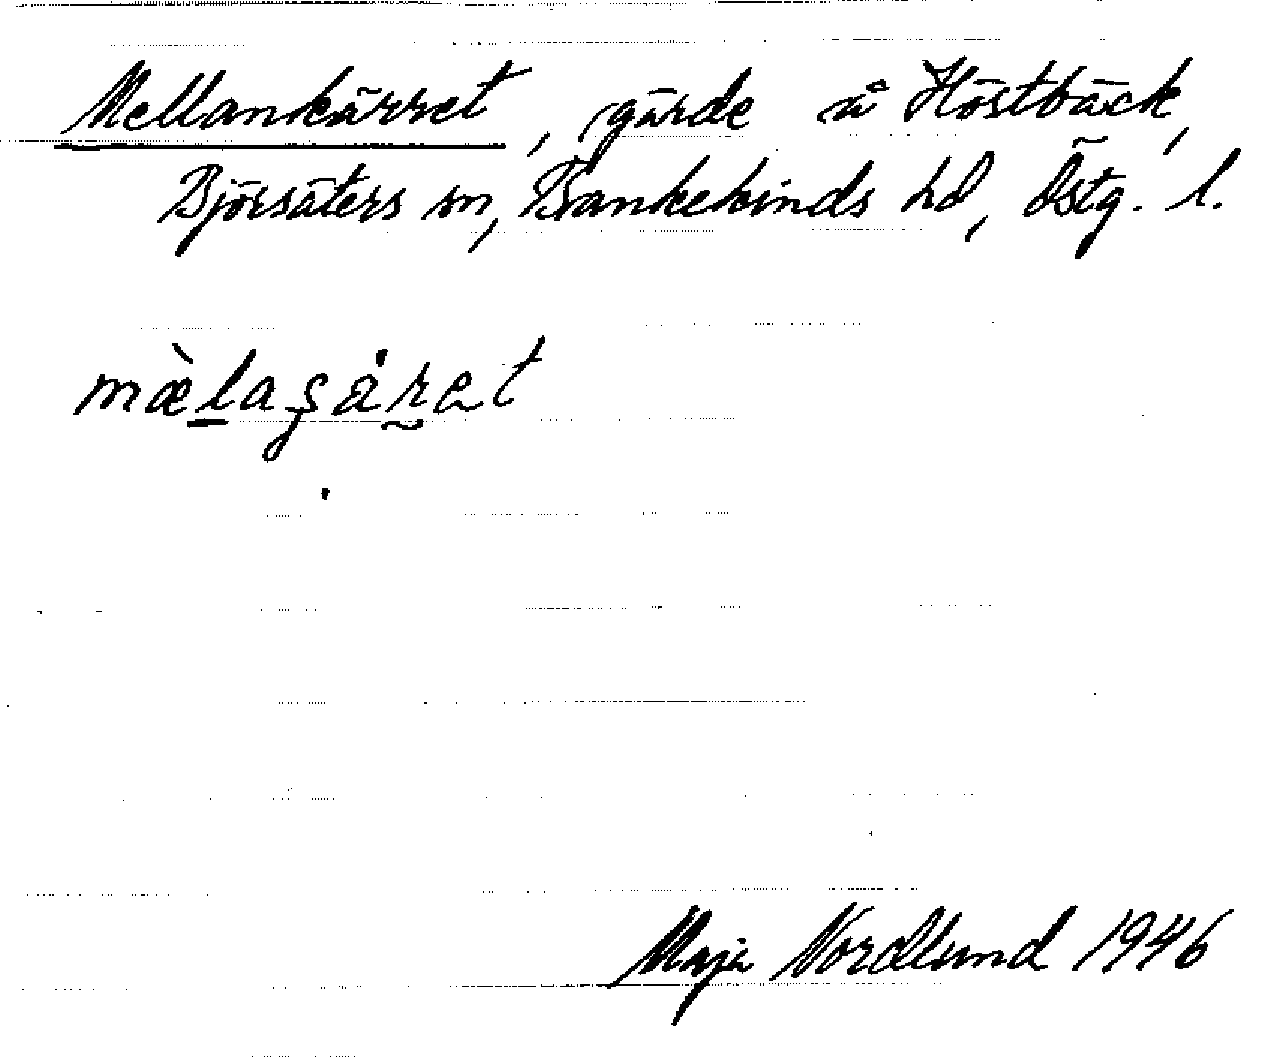 Mellankärret, gärde å Höstbäck,
Björsäters sn, Bankekinds hd, Östg. l.
Maja Nordlund 1946